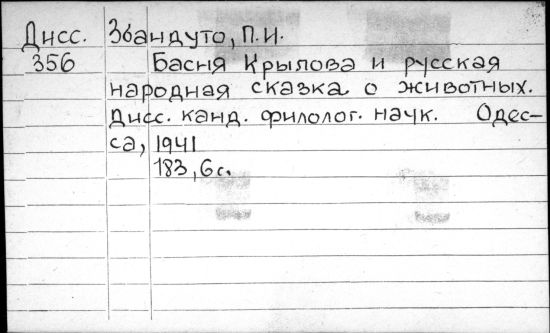 Дисс. Збандуто, П.И.
356 Басня Крылова и русская
народная сказка о животных.
Дисс. канд. филолог. наук. Одес-
са, 1941
183, 6 с.